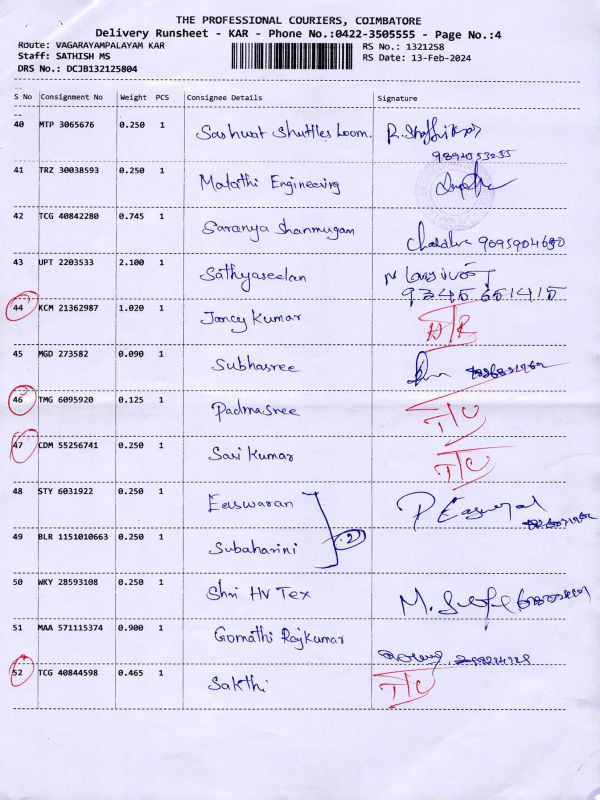 THE PROFESSIONAL COURIERS, COIMBATORE
Delivery Runsheet - KAR - Phone No.:0422-3505555 - Page No.:4
Route: VAGARAYAMPALAYAM KAR RS No.: 1321258
Staff: SATHISH MS RS Date: 13-Feb-2024
DRS No.: DCJB132125804
S No Consignment No Weight PCS Consignee Details Signature
40 MTP 3065676 0.250 1 Sashwat Shuttles Loom.
9894053255
41 TRZ 30038593 0.250 1 Malathi Engineering
42 TCG 40842280 0.745 1 Saranya Shanmugam
9095904680
43 UPT 2203533 2.100 1 Sathyaseelan
9345651415
44 KCM 21362987 1.020 1 Jancy Kumar
45 MGD 273582 0.090 1 Subhasree
46 TMG 6095920 0.125 1 Padmasree T/C
47 CDM 55256741 0.250 1 Sasi Kumar T/C
48 STY 6031922 0.250 1 Easwaran P Easwaran
49 BLR 1151010663 0.250 1 Subaharini 2
50 WKY 28593108 0.250 1 Shri HV Tex
51 MAA 571115374 0.900 1 Gomathi Rajkumar
52 TCG 40844598 0.465 1 Sakthi T/C